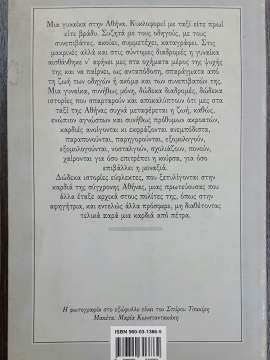 Μια γυναίκα στην Αθήνα. Κυκλοφορεί με ταξί είτε πρωί
είτε βράδυ. Συζητά με τους οδηγούς, με τους
συνεπιβάτες, ακούει, συμμετέχει, καταγράφει. Στις
μακρινές αλλά και στις σύντομες διαδρομές η γυναίκα
αισθάνθηκε ν' αφήνει μες στα οχήματα μέρος της ψυχής
της και να παίρνει, ως ανταπόδοση, σπαράγματα από
τη ζωή των οδηγών ή ακόμα και των συνεπιβατών της.
Μια γυναίκα, συνήθως μόνη, δώδεκα διαδρομές, δώδεκα
ιστορίες που σπαρταρούν και αποκαλύπτουν ότι μες στα
ταξί της Αθήνας συχνά μεταφέρεται η ζωή, καθώς,
ενώπιον αγνώστων και συνήθως πρόθυμων ακροατών,
καρδιές ανοίγονται κι εκφράζονται ανεμπόδιστα,
παραπονούνται, παρηγορούνται, εξομολογούν,
εξομολογούνται, νοσταλγούν, σχολιάζουν, πονούν,
χαίρονται για όσο επιτρέπει η κούρσα, για όσο
επιβάλλει η μοναξιά.
Δώδεκα ιστορίες εύφλεκτες, που ξετυλίγονται στην
καρδιά της σύγχρονης Αθήνας, μιας πρωτεύουσας που
άλλα έταξε αρχικά στους πολίτες της, όπως στην
αφηγήτρια, και εντελώς άλλα πρόσφερε, μη διαθέτοντας
τελικά παρά μια καρδιά από πέτρα.
Η φωτογραφία στο εξώφυλλο είναι του Σπύρου
Μακέτα: Μαρία Κωνσταντακάκη
ISBN 960-03-1366-5